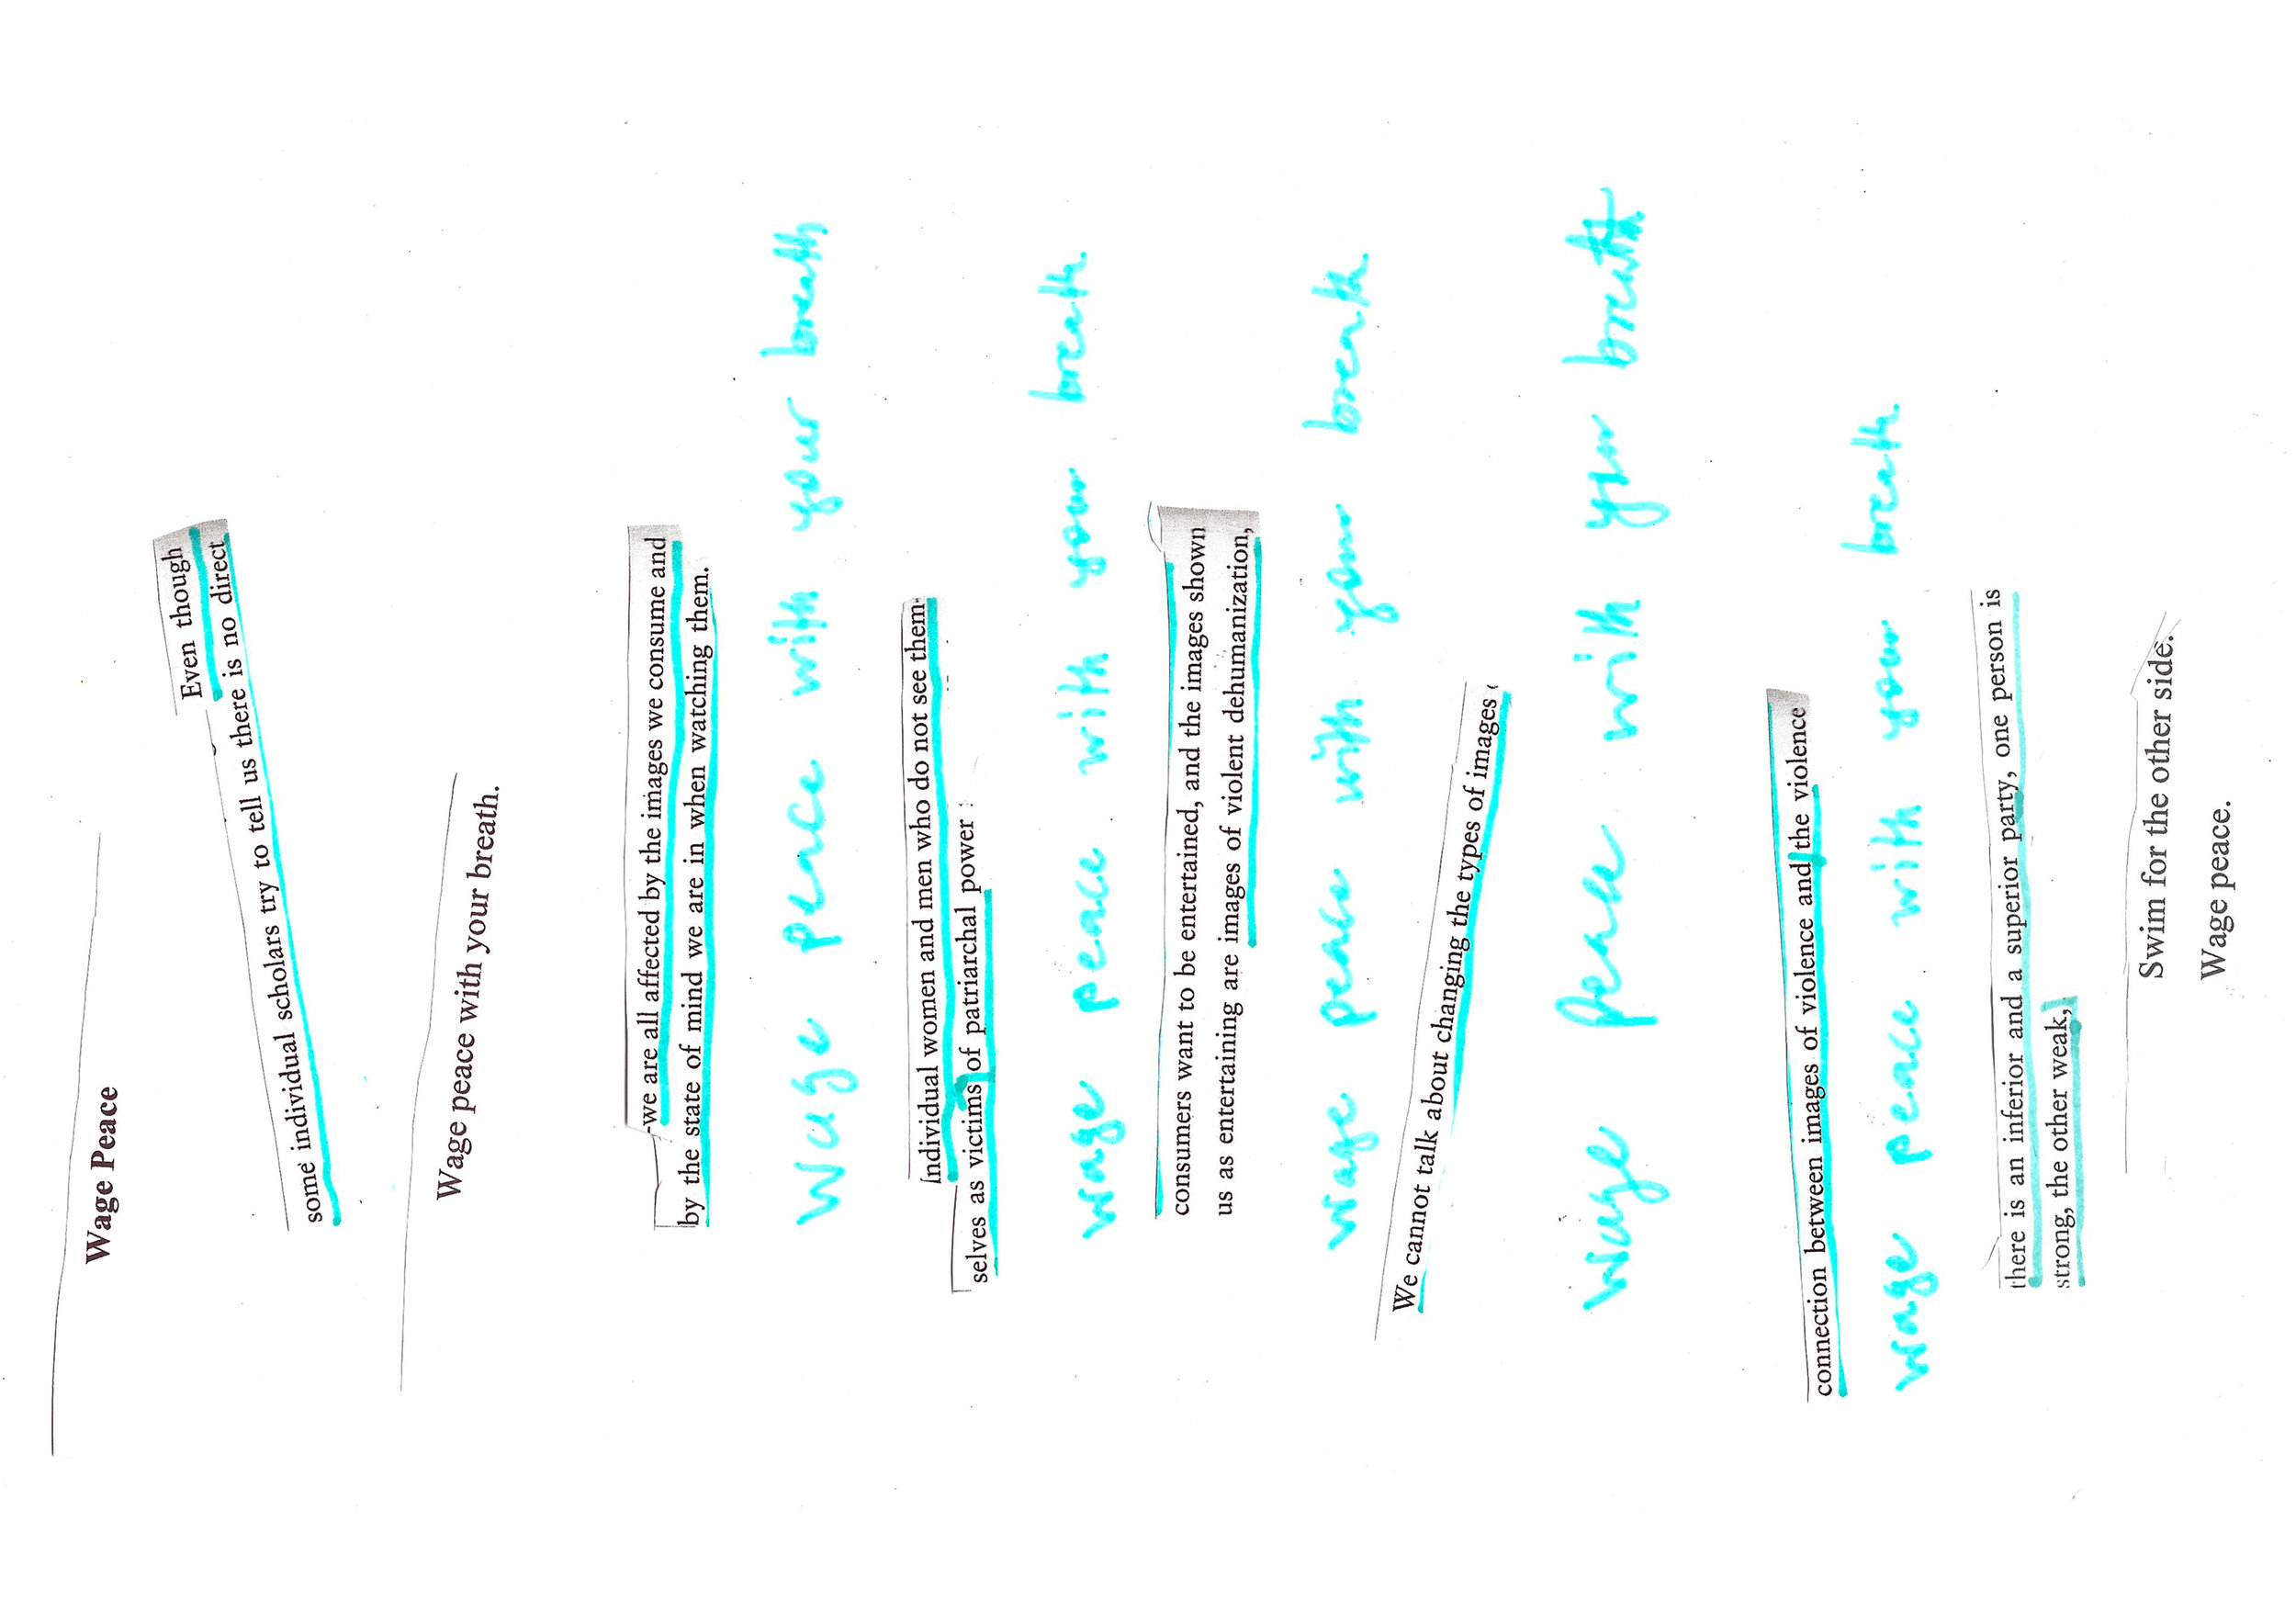 Wage Peace
Even though
some individual scholars try to tell us there is no direct
Wage peace with your breath.
-we are all affected by the images we consume and
by the state of mind we are in when watching them.
Wage peace with your breath
Individual women and men who do not see them-
selves as victims of patriarchal power
wage peace with your breath.
consumers want to be entertained, and the images shown
us as entertaining are images of violent dehumanization,
wage peace with your breath.
We cannot talk about changing the types of images
wage peace with your breath
connection between images of violence and the violence
wage peace with your breath.
there is an inferior and a superior party, one person is
strong, the other weak,
Swim for the other side.
Wage peace.